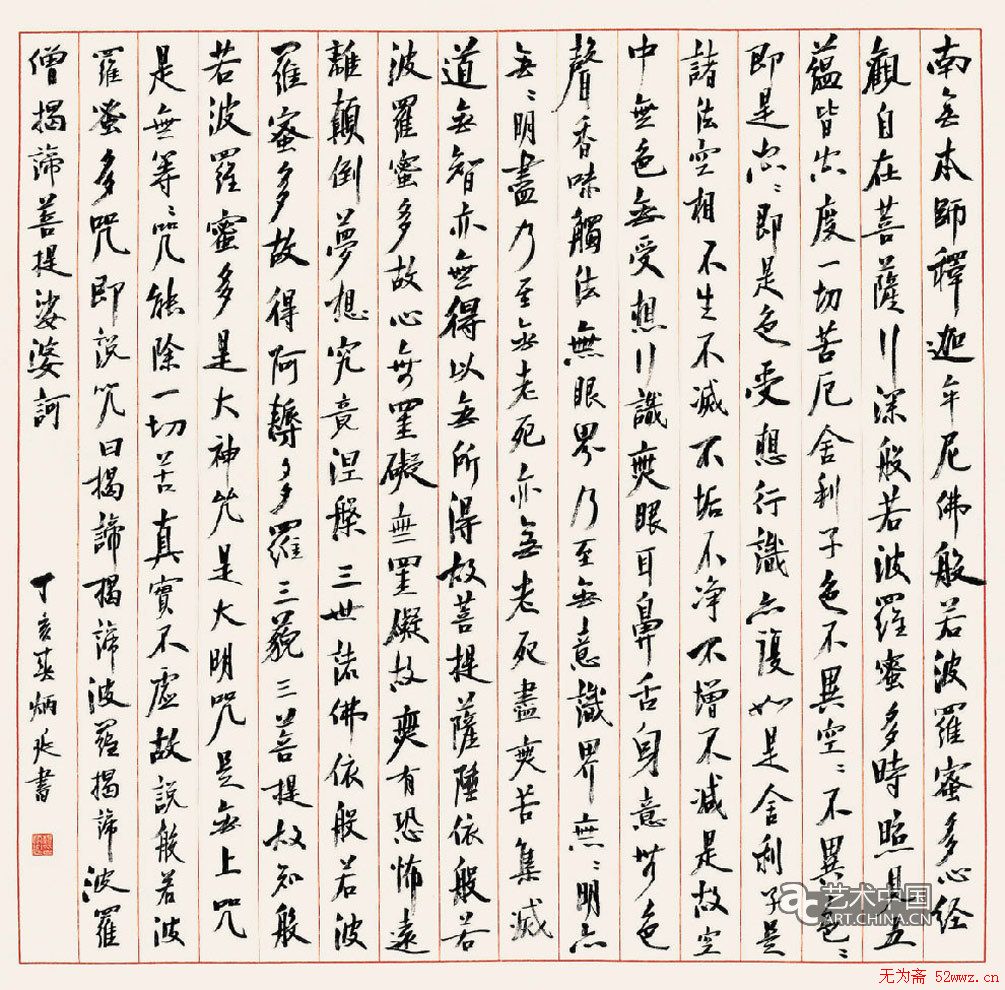 南無本師釋迦牟尼佛般若波羅蜜多心经
觀自在菩薩行深般若波羅蜜多時照見五
蘊皆空度一切苦厄舍利子色不異空〻不異色〻
即是空〻即是色受想行識亦復如是舍利子是
諸法空相不生不滅不垢不净不增不减是故空
中無色無受想行識無眼耳鼻舌身意無色
聲香味觸法無眼界乃至無意識界無〻明亦
無〻明盡乃至無老死亦無老死盡無苦集滅
道無智亦無得以無所得故菩提薩埵依般若
波羅蜜多故心無罣礙無罣礙故無有恐怖遠
離顛倒夢想究竟涅槃三世諸佛依般若波
羅蜜多故得阿耨多羅三藐三菩提故知般
若波羅蜜多是大神咒是大明咒是無上咒
是無等〻咒能除一切苦真實不虛故說般若波
羅蜜多咒即說咒曰揭諦揭諦波羅揭諦波羅
僧揭諦菩提娑婆訶
丁亥春炳延書
艺术中国
ART.CHINA.CN
无为斋 52wwz.cn